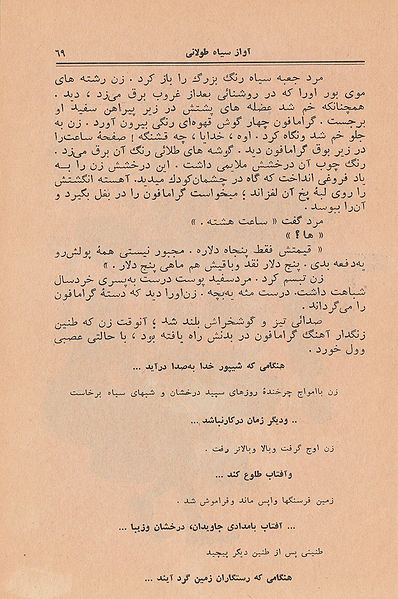 آواز سیاه طولانی ۶۹
مرد جعبه سیاه رنگ بزرگ را باز کرد . زن رشته های
موی بور اورا که در روشنائی بعداز غروب برق میزد ، دید .
همچنانکه خم شد عضله های پشتش در زیر پیراهن سفید او
برجست . گرامافون چهار گوش قهوه‌ای رنگی بیرون آورد . زن به
جلو خم شد ونگاه کرد . اوه ، خدایا ، چه قشنگه ! صفحهٔ ساعت‌را
در زیر بوق گرامافون دید . گوشه های طلائی رنگ آن برق میزد .
رنگ چوب آن درخشش ملایمی داشت . این درخشش زن را بــه
یاد فروغی انداخت که گاه در چشمان‌کودك میدید. آهسته انگشتش
را روی لبهٔ پخ آن لغزاند ؛ میخواست گرامافون را در بغل بگیرد و
آن‌را ببوسد .
مرد گفت « ساعت هشته . »
« ها ؟ »
« قیمتش فقط پنجاه دلاره . مجبور نیستی همهٔ پولش‌رو
به‌دفعه بدی . پنج دلار نقد وباقیش هم ماهی پنج دلار . »
زن تبسم کرد . مردسفید پوست درست به‌پسری خردسال
شباهت داشت. درست مثه یه‌بچه . زن‌اورا دید که دستهٔ گرامافون
را می‌گرداند .
صدائی تیز و گوشخراش بلند شد ؛ آنوقت زن که طنین
زنگدار آهنگ گرامافون در بدنش راه یافته بود ، با حالتی عصبی
وول خورد .
هنگامی که شیپور خدا به‌صدا درآید ...
زن باامواج چرخندهٔ روزهای سپید درخشان و شبهای سیاه برخاست
.. ودیگر زمان درکارنباشد ...
زن اوج گرفت وبالا وبالاتر رفت .
وآفتاب طلوع کند ...
زمین فرسنگها واپس ماند وفراموش شد .
... آفتاب بامدادی جاویدان، درخشان وزیبا ...
طنینی پس از طنین دیگر پیچید
هنگامی که رستگاران زمین گرد آیند ...